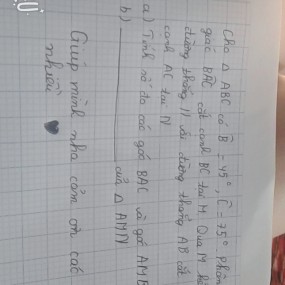 Cho Δ ABC có B̂ = 45°, Ĉ = 75°. Phân
giác BAC cắt cạnh BC tại M. Qua M kẻ
đường thẳng // với đường thẳng AB cắt
cạnh AC tại N
a) Tính số đo các góc BAC và góc AMB
b) của Δ AMN
Giúp mình nha cảm ơn các
nhiều